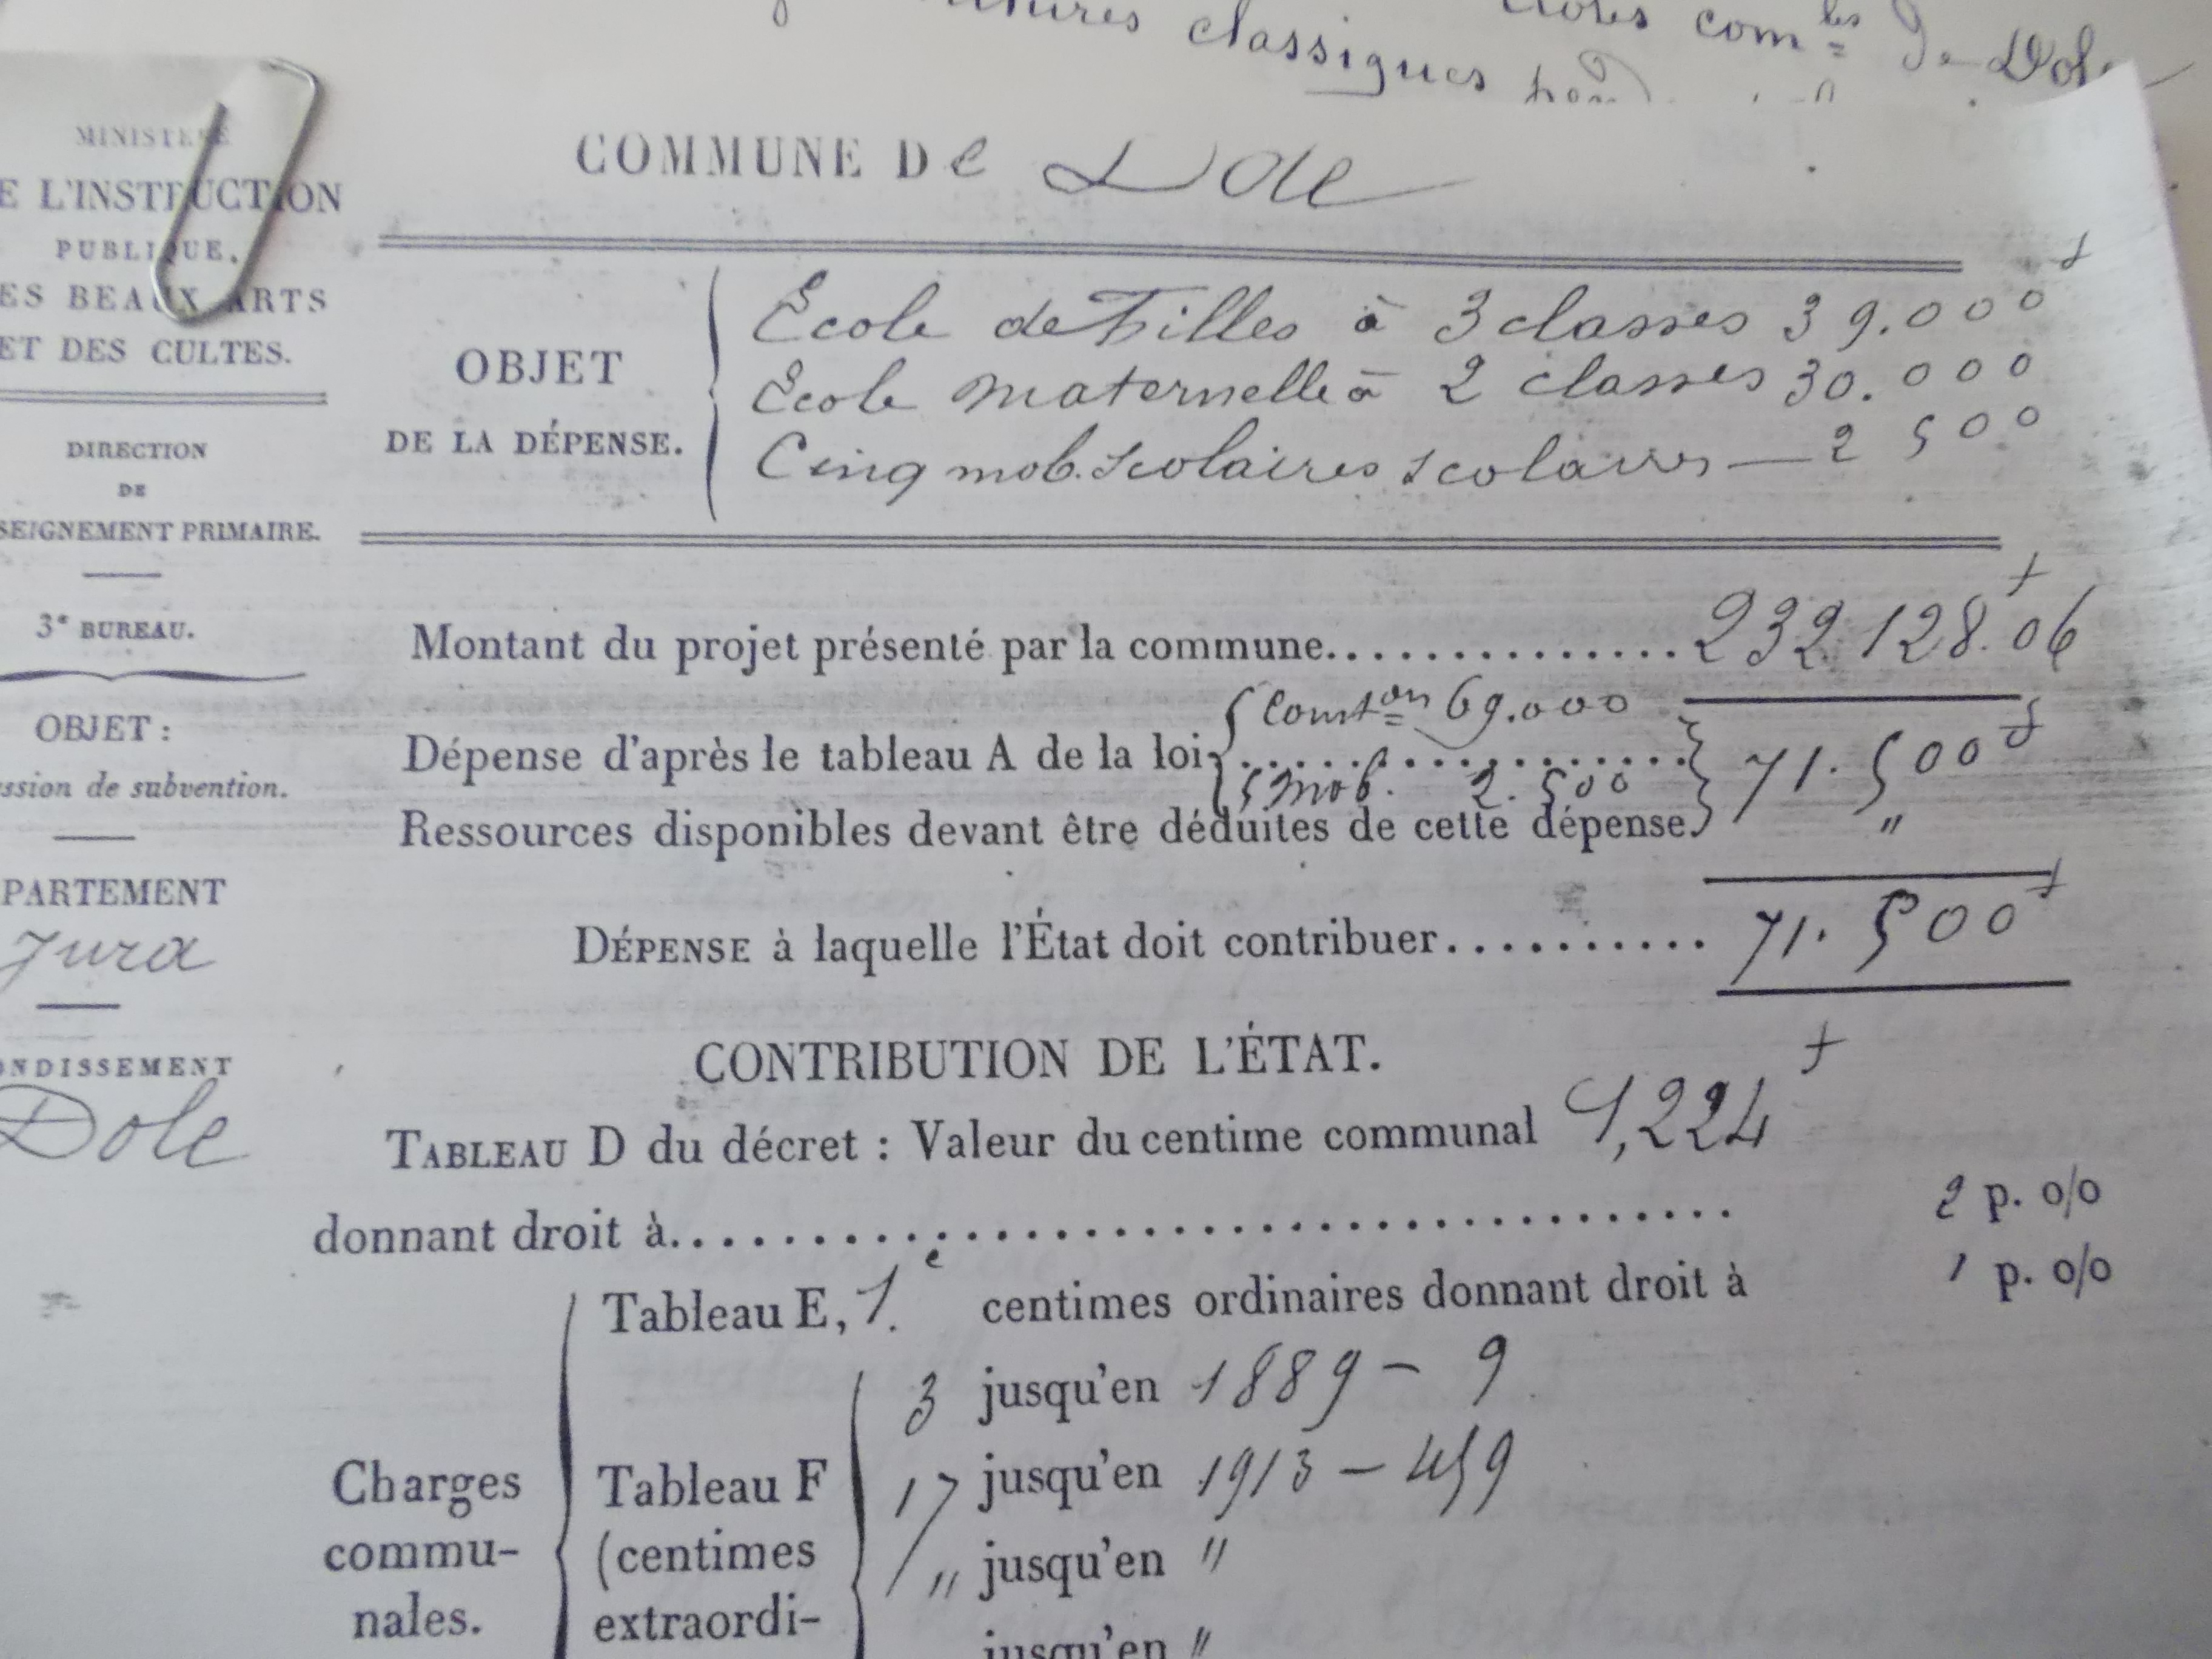 classiques
com^les de Dole
MINISTÈRE
E L'INSTRUCTION
PUBLIQUE,
ES BEAUX ARTS
ET DES CULTES.
DIRECTION
DE
SEIGNEMENT PRIMAIRE.
3e BUREAU.
OBJET :
ssion de subvention.
PARTEMENT
Jura
ONDISSEMENT
Dole
COMMUNE De Dole
OBJET
DE LA DÉPENSE.
Ecole de Filles à 3 classes 39.000 f
Ecole maternelle à 2 classes 30.000
Cinq mob. scolaires scolaires — 2 500
Montant du projet présenté par la commune.............. 232 128.f 06
Const^on 69.000
Dépense d'après le tableau A de la loi............. 71.500 f
5 mob. 2.500
Ressources disponibles devant être déduites de cette dépense. "
DÉPENSE à laquelle l'État doit contribuer.......... 71.500 f
CONTRIBUTION DE L'ÉTAT.
TABLEAU D du décret : Valeur du centime communal 1,224 f
donnant droit à........................................ 2 p. o/o
Tableau E, 1.e centimes ordinaires donnant droit à 1 p. o/o
3 jusqu'en 1889 - 9
17 jusqu'en 1913 - 459
" jusqu'en "
jusqu'en "
Charges
commu-
nales.
Tableau F
(centimes
extraordi-